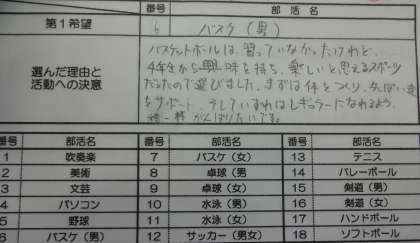 番号 部活名
第1希望 6 バスケ(男)
選んだ理由と
活動への決意
バスケットボールは、習っていなかったけれど、
4年生から興味を持ち、楽しいと思えるスポーツ
だったので選びました。まずは体をつくり、先ぱい達
をサポート、そしていずれはレギュラーになれるよう、
精一杯がんばりたいです。
番号 部活名 番号 部活名 番号 部活名
1 吹奏楽 7 バスケ(女) 13 テニス
2 美術 8 卓球(男) 14 バレーボール
3 文芸 9 卓球(女) 15 剣道(男)
4 パソコン 10 水泳(男) 16 剣道(女)
5 野球 11 水泳(女) 17 ハンドボール
6 バスケ(男) 12 サッカー(男女) 18 ソフトボール